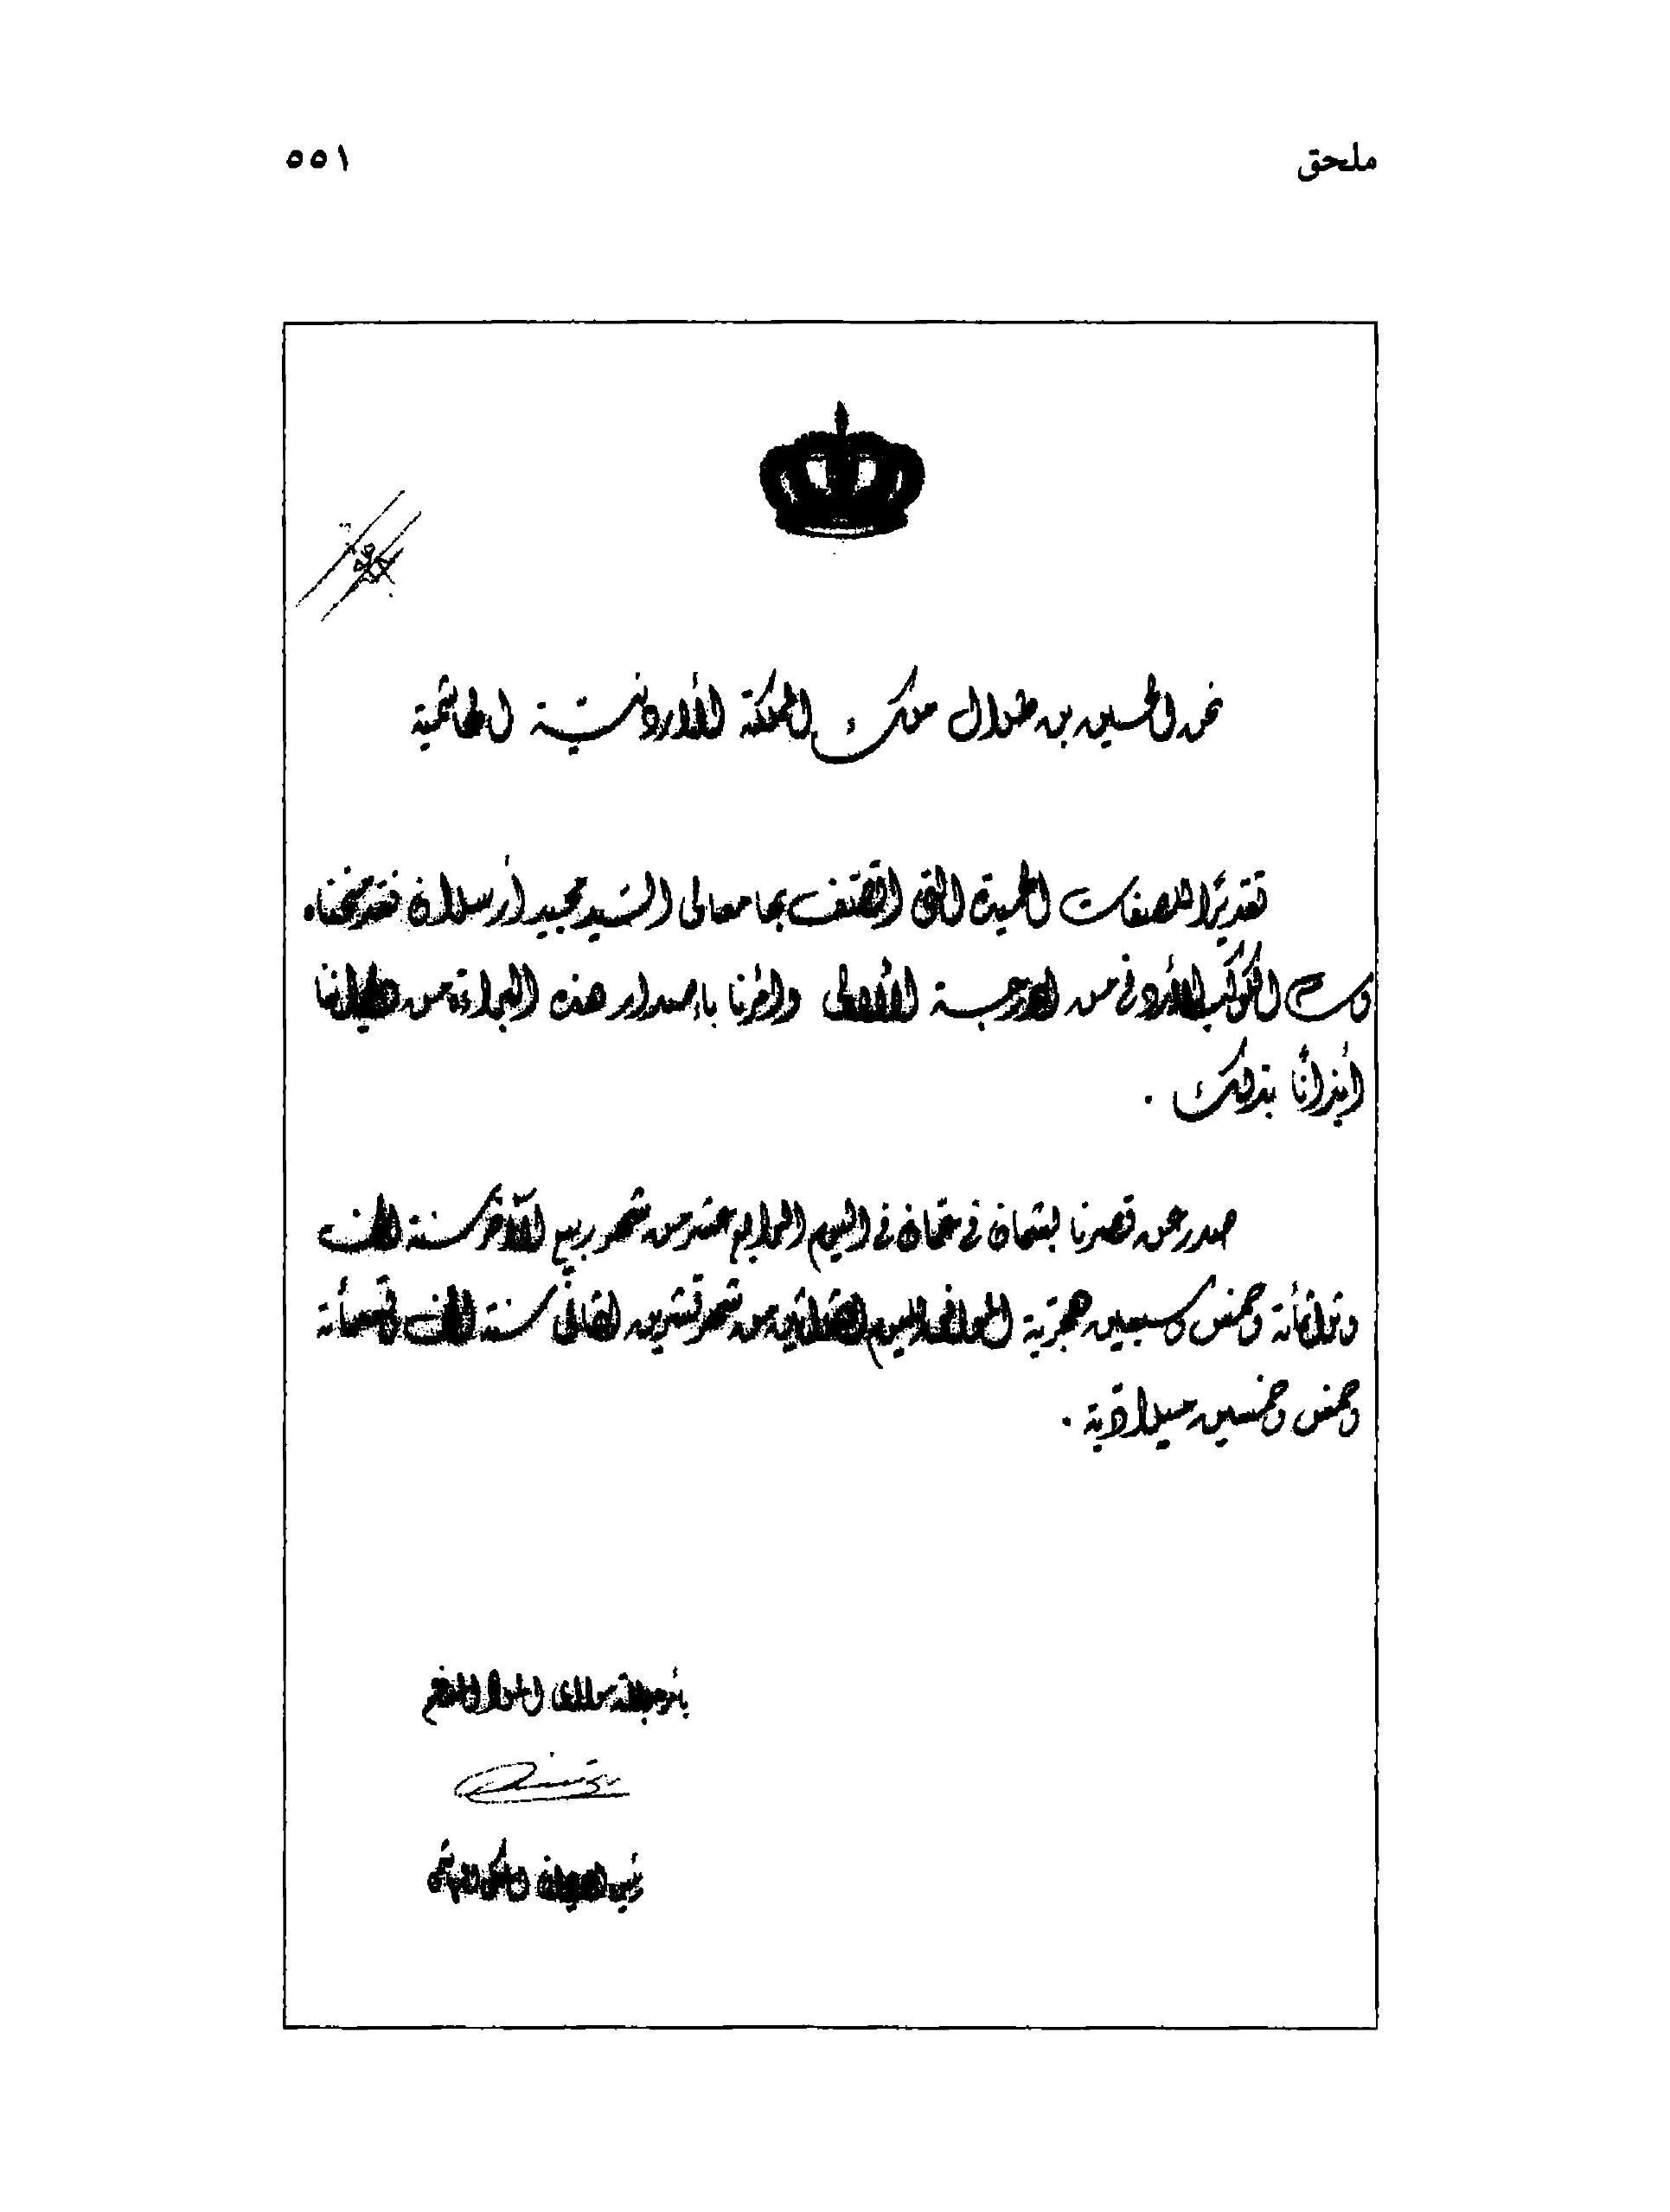 ملحق ٥٥١
نحن الحسين بن طلال ملك المملكة الأردنية الهاشمية
تقديرًا للصفات الحميدة التي اتصف بها معالي السيد مجيد أرسلان فقد منحناه
وسام الكوكب الأردني من الدرجة الأولى وأمرنا بإصدار هذه البراءة من ديواننا
إيذانًا بذلك .
صدر عن قصرنا بسمان في عمان في اليوم الرابع عشر من شهر ربيع الآخر سنة ألف
وثلاثمائة وخمس وسبعين هجرية الموافق لليوم الثلاثين من شهر تشرين الثاني سنة ألف وتسعمائة
وخمس وخمسين ميلادية .
بأمر جلالة مولانا الملك المعظم
رئيس الديوان الملكي الهاشمي